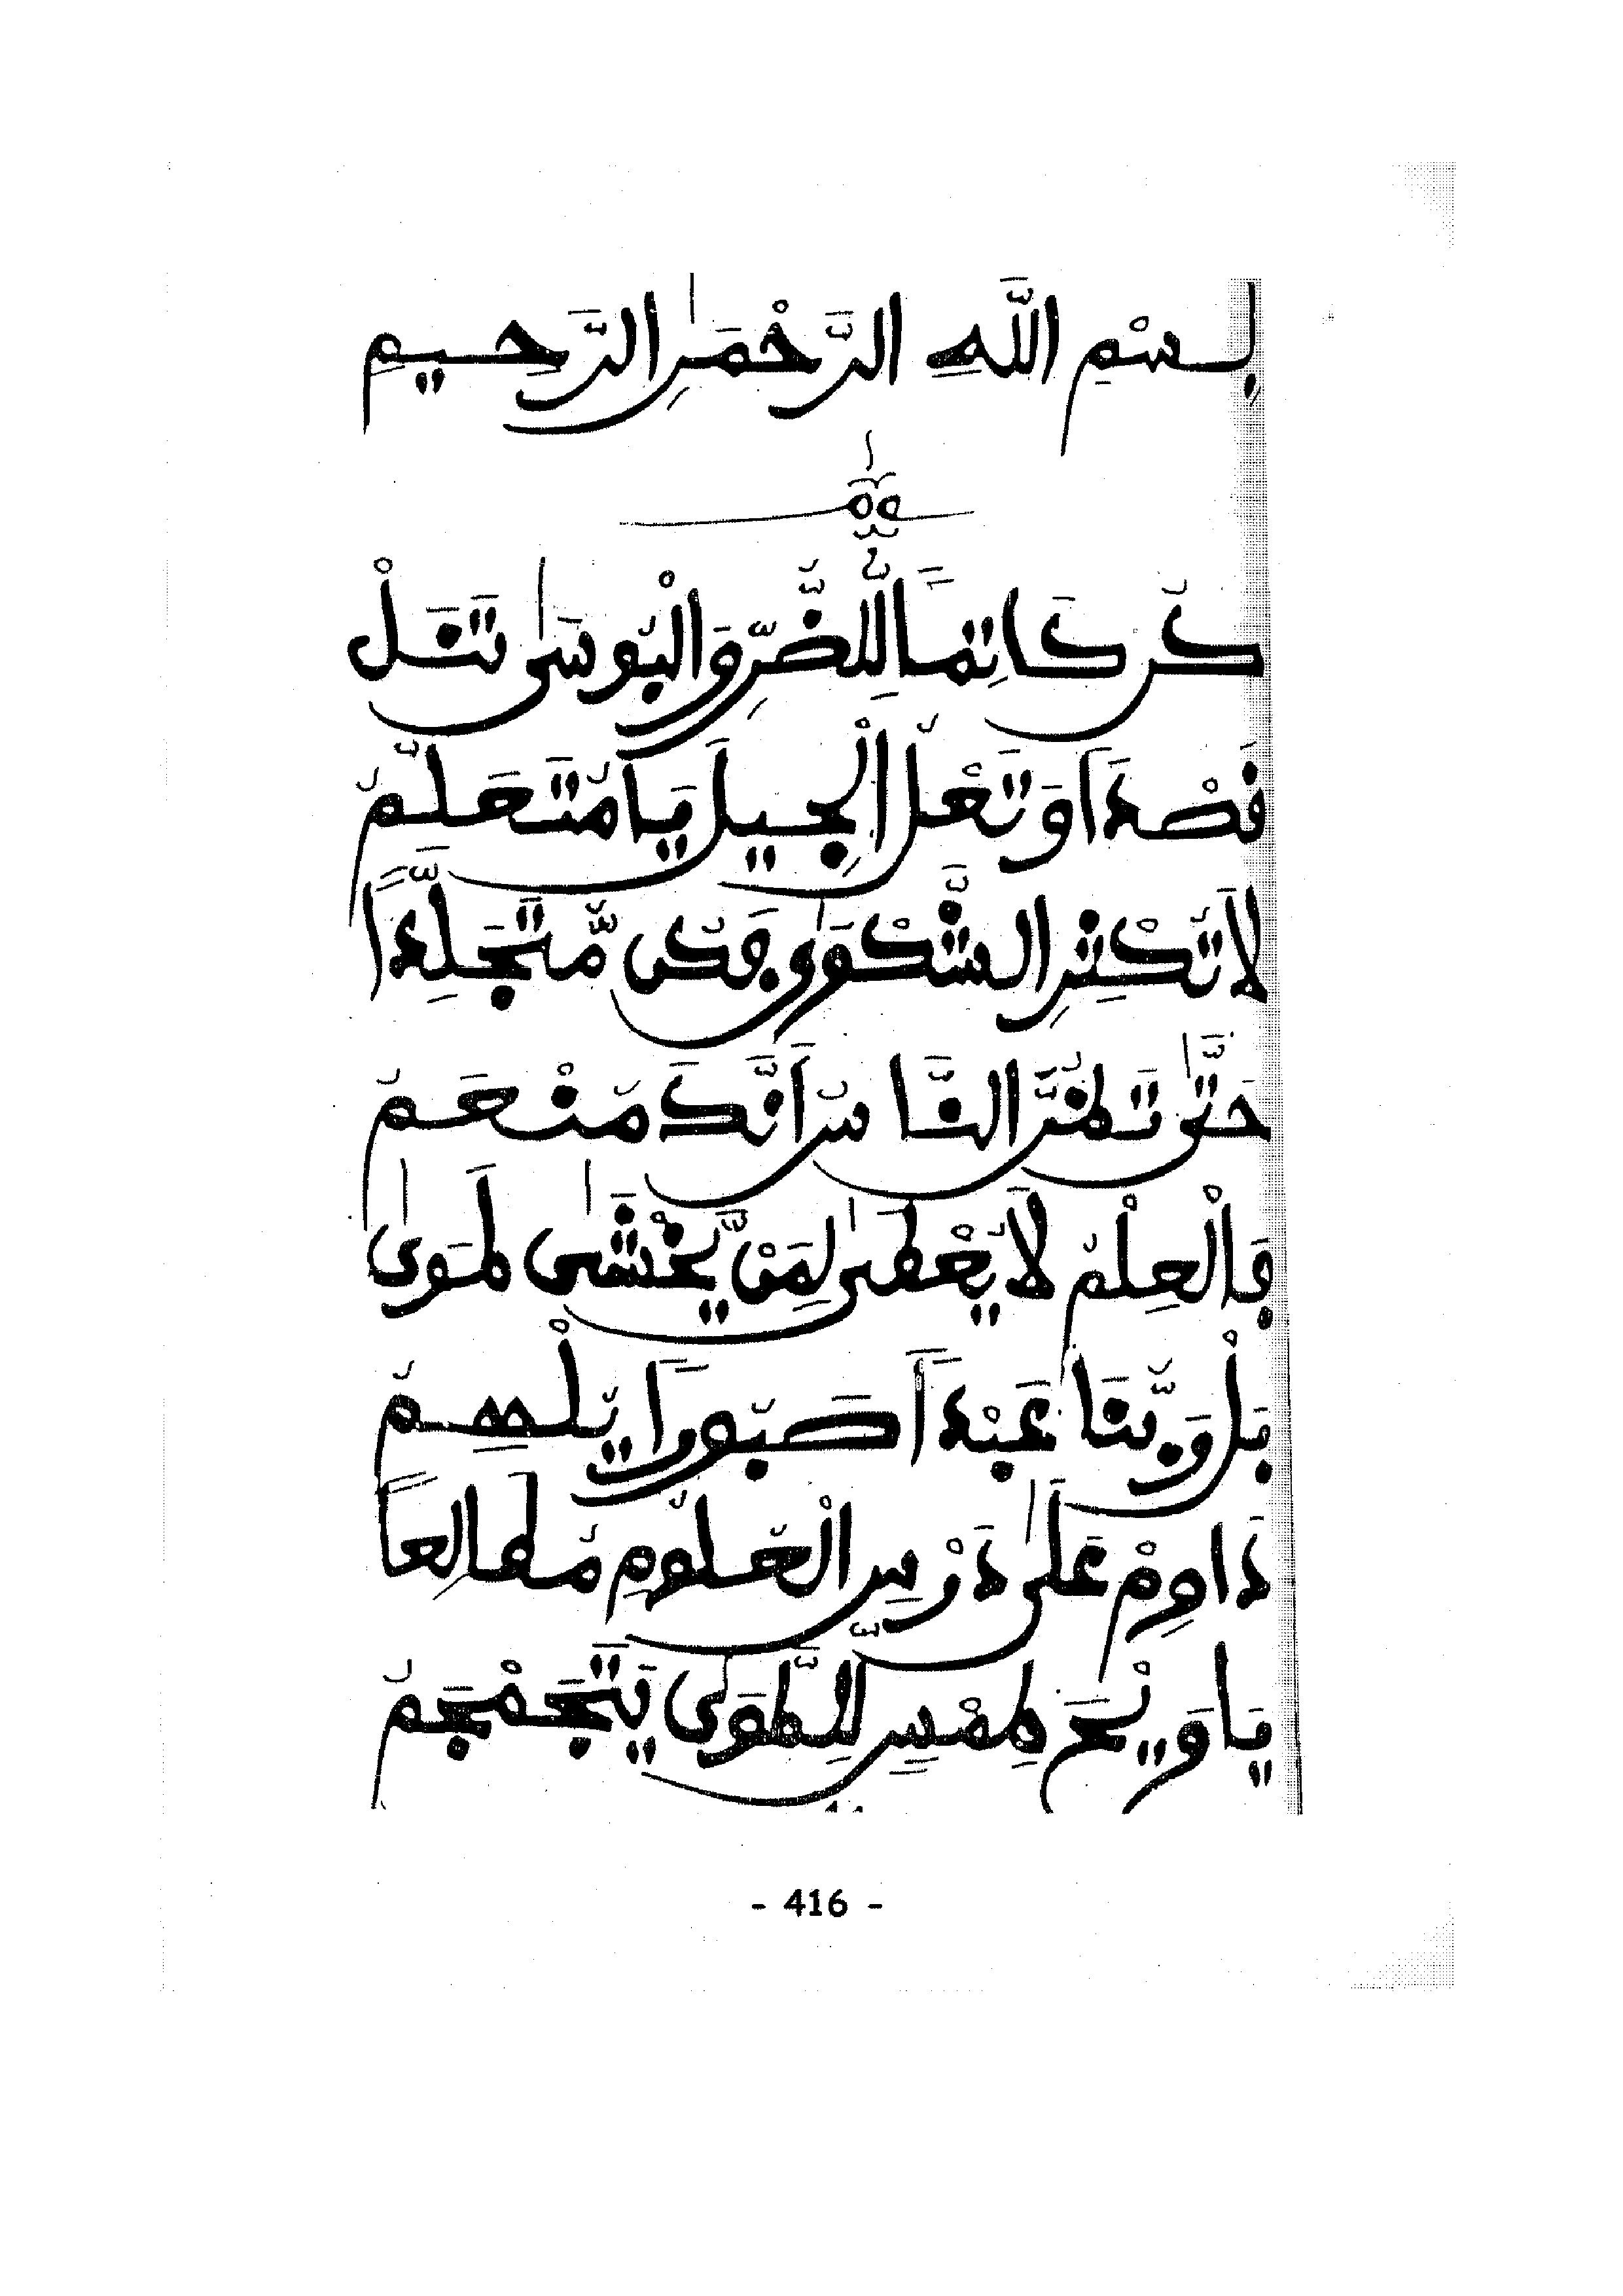 بِسْمِ اللَّهِ الرَّحْمَٰنِ الرَّحِيمِ
كُنْ كَاتِمًا لِلضُّرِّ وَالْبُوسَىٰ تَنَلْ
قَصْدًا وَتَعْلُ الْجِيلَ يَا مُتَعَلِّمُ
لَا تُكْثِرِ الشَّكْوَىٰ وَكُن مُّتَجَلِّدًا
حَتَّىٰ تَظُنَّ النَّاسُ أَنَّكَ مُنْعَمُ
فَالْعِلْمُ لَا يُعْطَىٰ لِمَن يَّخْشَىٰ طَوَىٰ
بَلْ رَبُّنَا عَبْدًا صَبُورًا يُلْهِمُ
دَاوِمْ عَلَىٰ دَرْسِ الْعُلُومِ مُطَالِعًا
يَا وَيْحَ طِمْسٍ لِلطَّوَىٰ يَتَجَمْجَمُ
- 416 -